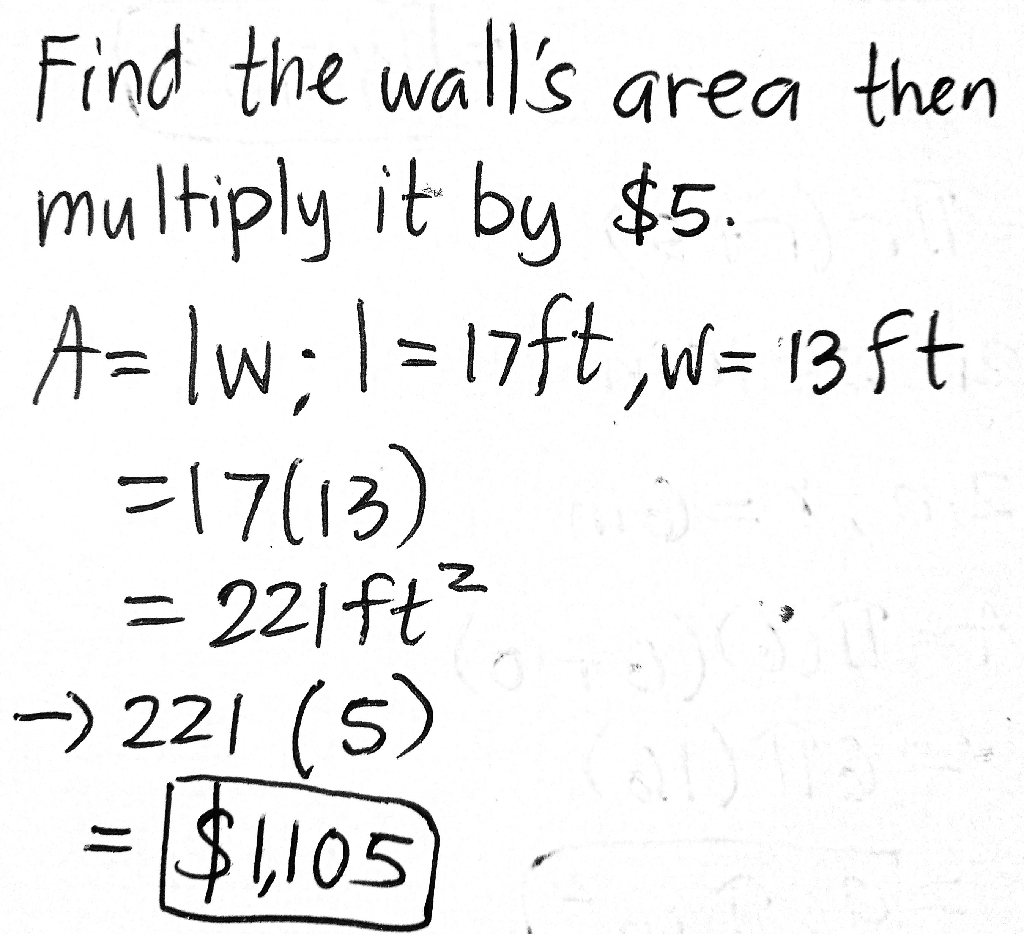 Find the wall's area then
multiply it by $5.
A = lw; l = 17ft, w = 13 ft
= 17(13)
= 221 ft²
→ 221 (5)
= $1,105